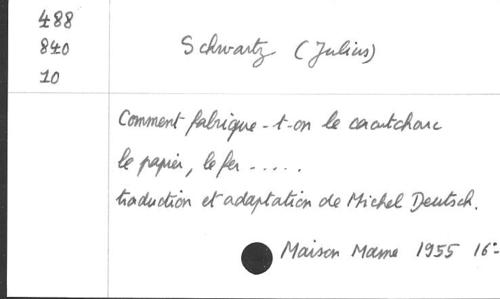 488
840
10
Schwartz (Julius)
Comment fabrique-t-on le caoutchouc
le papier, le fer .....
traduction et adaptation de Michel Deutsch.
Maison Mame 1955 16°